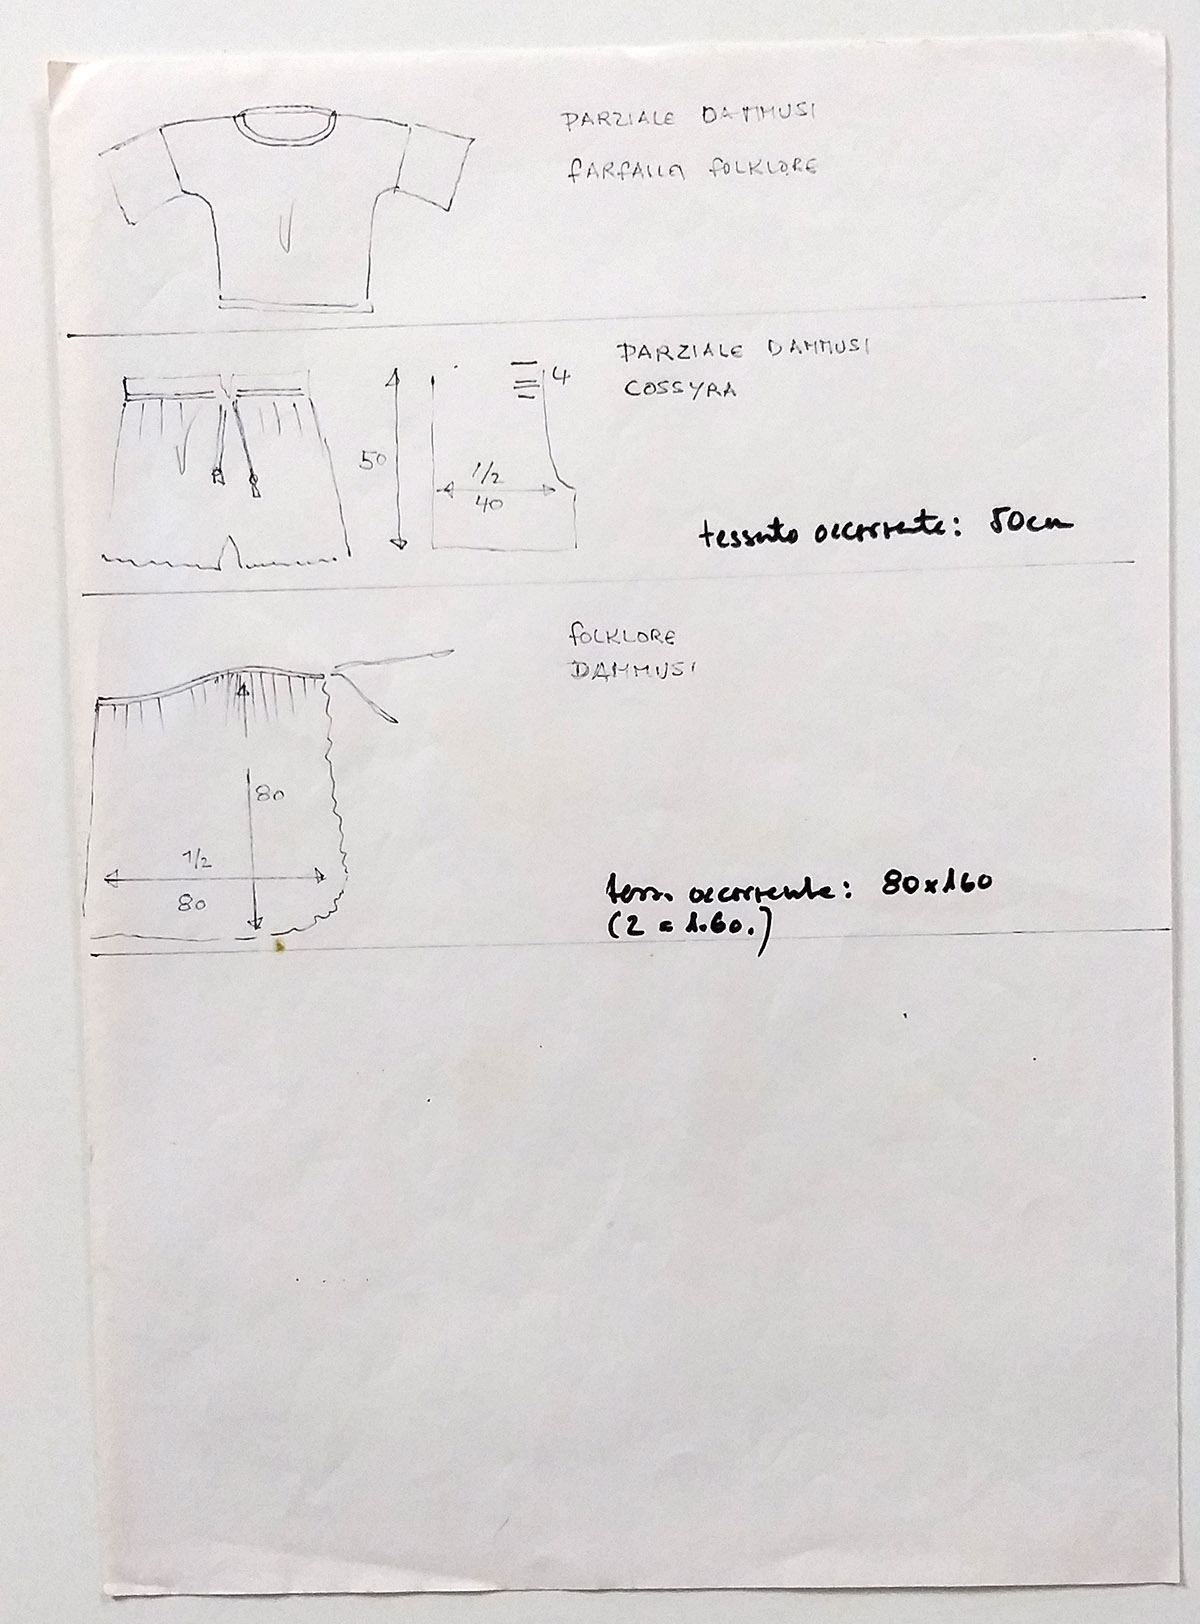 PARZIALE DAMMUSI
FARFALLA FOLKLORE
PARZIALE DAMMUSI
COSSYRA
4
50
1/2
40
tessuto occorrente: 50cm
FOLKLORE
DAMMUSI
80
1/2
80
tess. occorrente: 80x160
(2 = 1.60.)